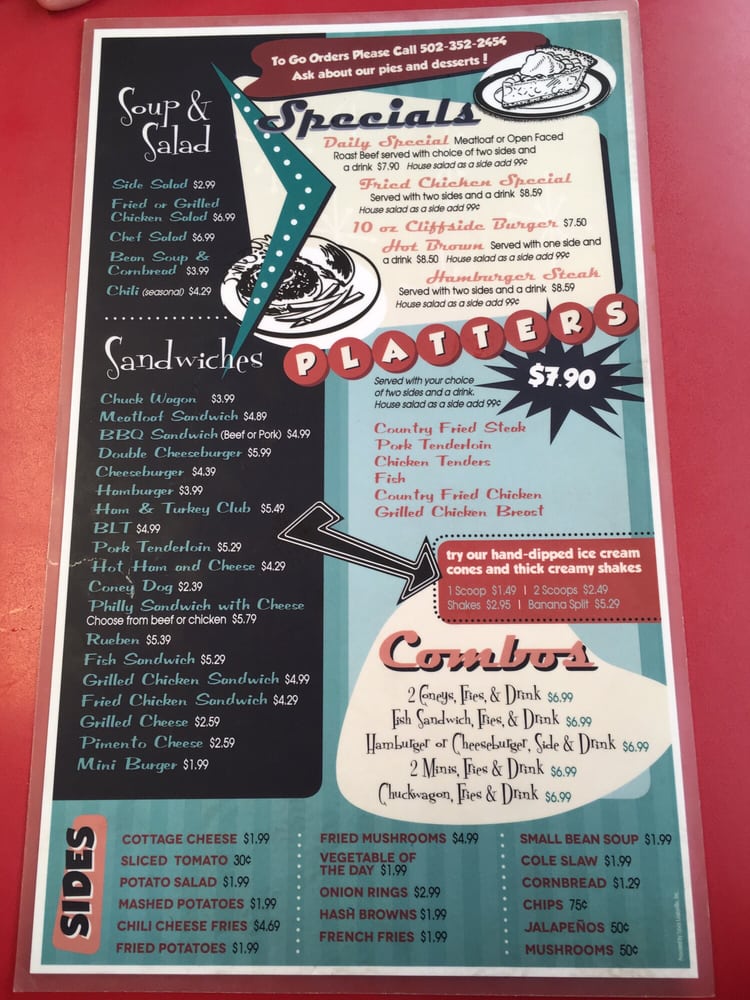 To Go Orders Please Call 502-352-2454
Ask about our pies and desserts!
Soup &
Salad
Side Salad $2.99
Fried or Grilled
Chicken Salad $6.99
Chef Salad $6.99
Bean Soup &
Cornbread $3.99
Chili (seasonal) $4.29
Specials
Daily Special Meatloaf or Open Faced
Roast Beef served with choice of two sides and
a drink $7.90 House salad as a side add 99¢
Fried Chicken Special
Served with two sides and a drink $8.59
House salad as a side add 99¢
10 oz Cliffside Burger $7.50
Hot Brown Served with one side and
a drink $8.50 House salad as a side add 99¢
Hamburger Steak
Served with two sides and a drink $8.59
House salad as a side add 99¢
Sandwiches
Chuck Wagon $3.99
Meatloaf Sandwich $4.89
BBQ Sandwich (Beef or Pork) $4.99
Double Cheeseburger $5.99
Cheeseburger $4.39
Hamburger $3.99
Ham & Turkey Club $5.49
BLT $4.99
Pork Tenderloin $5.29
Hot Ham and Cheese $4.29
Coney Dog $2.39
Philly Sandwich with Cheese
Choose from beef or chicken $5.79
Rueben $5.39
Fish Sandwich $5.29
Grilled Chicken Sandwich $4.99
Fried Chicken Sandwich $4.29
Grilled Cheese $2.59
Pimento Cheese $2.59
Mini Burger $1.99
PLATTERS
$7.90
Served with your choice
of two sides and a drink.
House salad as a side add 99¢
Country Fried Steak
Pork Tenderloin
Chicken Tenders
Fish
Country Fried Chicken
Grilled Chicken Breast
try our hand-dipped ice cream
cones and thick creamy shakes
1 Scoop $1.49 | 2 Scoops $2.49
Shakes $2.95 | Banana Split $5.29
Combos
2 Coneys, Fries, & Drink $6.99
Fish Sandwich, Fries, & Drink $6.99
Hamburger or Cheeseburger, Side & Drink $6.99
2 Minis, Fries & Drink $6.99
Chuckwagon, Fries & Drink $6.99
SIDES
COTTAGE CHEESE $1.99
SLICED TOMATO 30¢
POTATO SALAD $1.99
MASHED POTATOES $1.99
CHILI CHEESE FRIES $4.69
FRIED POTATOES $1.99
FRIED MUSHROOMS $4.99
VEGETABLE OF
THE DAY $1.99
ONION RINGS $2.99
HASH BROWNS $1.99
FRENCH FRIES $1.99
SMALL BEAN SOUP $1.99
COLE SLAW $1.99
CORNBREAD $1.29
CHIPS 75¢
JALAPEÑOS 50¢
MUSHROOMS 50¢